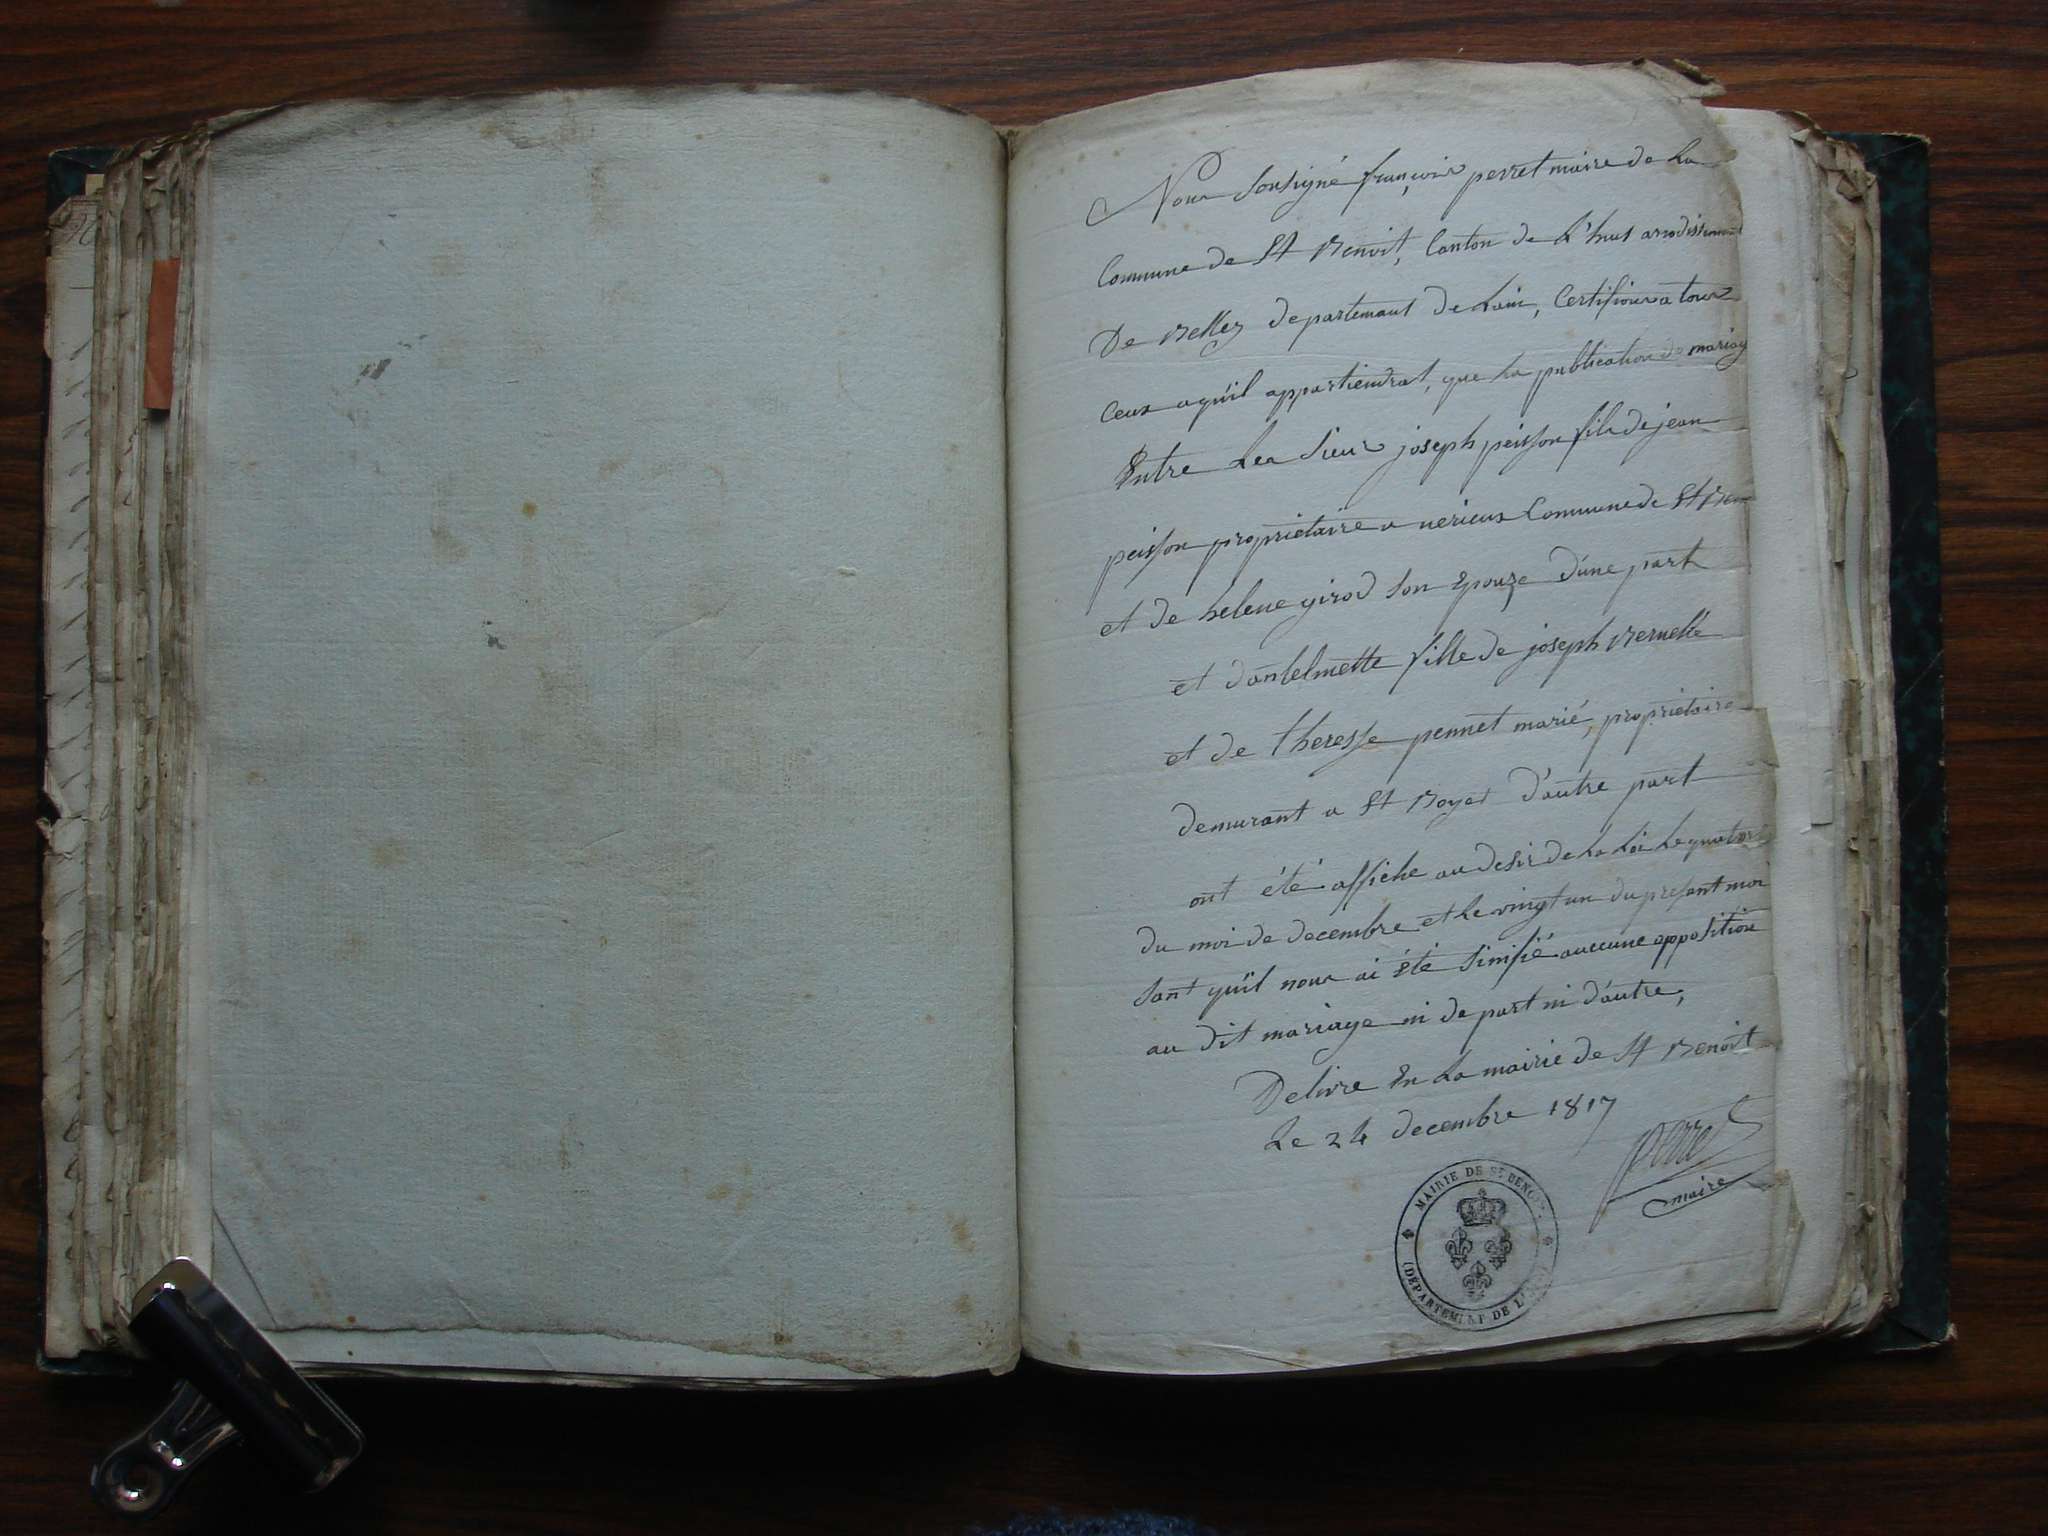 Nous Sousigné françois perret maire de La
Commune de St Benoit, Canton de L'hus arrodissement
De Belley departemant de Lain, Certifions a tous
Ceux a quil appartiendrat, que la publication de mariag
Entre Les Sieur joseph peisson fils de jean
peisson proprietaire a nerieux Commune de St Ben
et de helene girod Son Epouze d'une part
et d'anselmette fille de joseph Bernelle
et de theresse pennet marié, proprietaire
demurant a St Boyes d'autre part
ont été affiche au desir de La Loi Le quatorz
du moi de decembre et Le vingt un du present moi
Sant quil nous ai été Sinifié auccune opposition
au dit mariage ni de part ni d'autre,
Delivre En La mairie de St Benoit
Le 24 decembre 1817
perret
maire
MAIRIE DE ST BENOIT
(DÉPARTEMENT DE L'AIN)